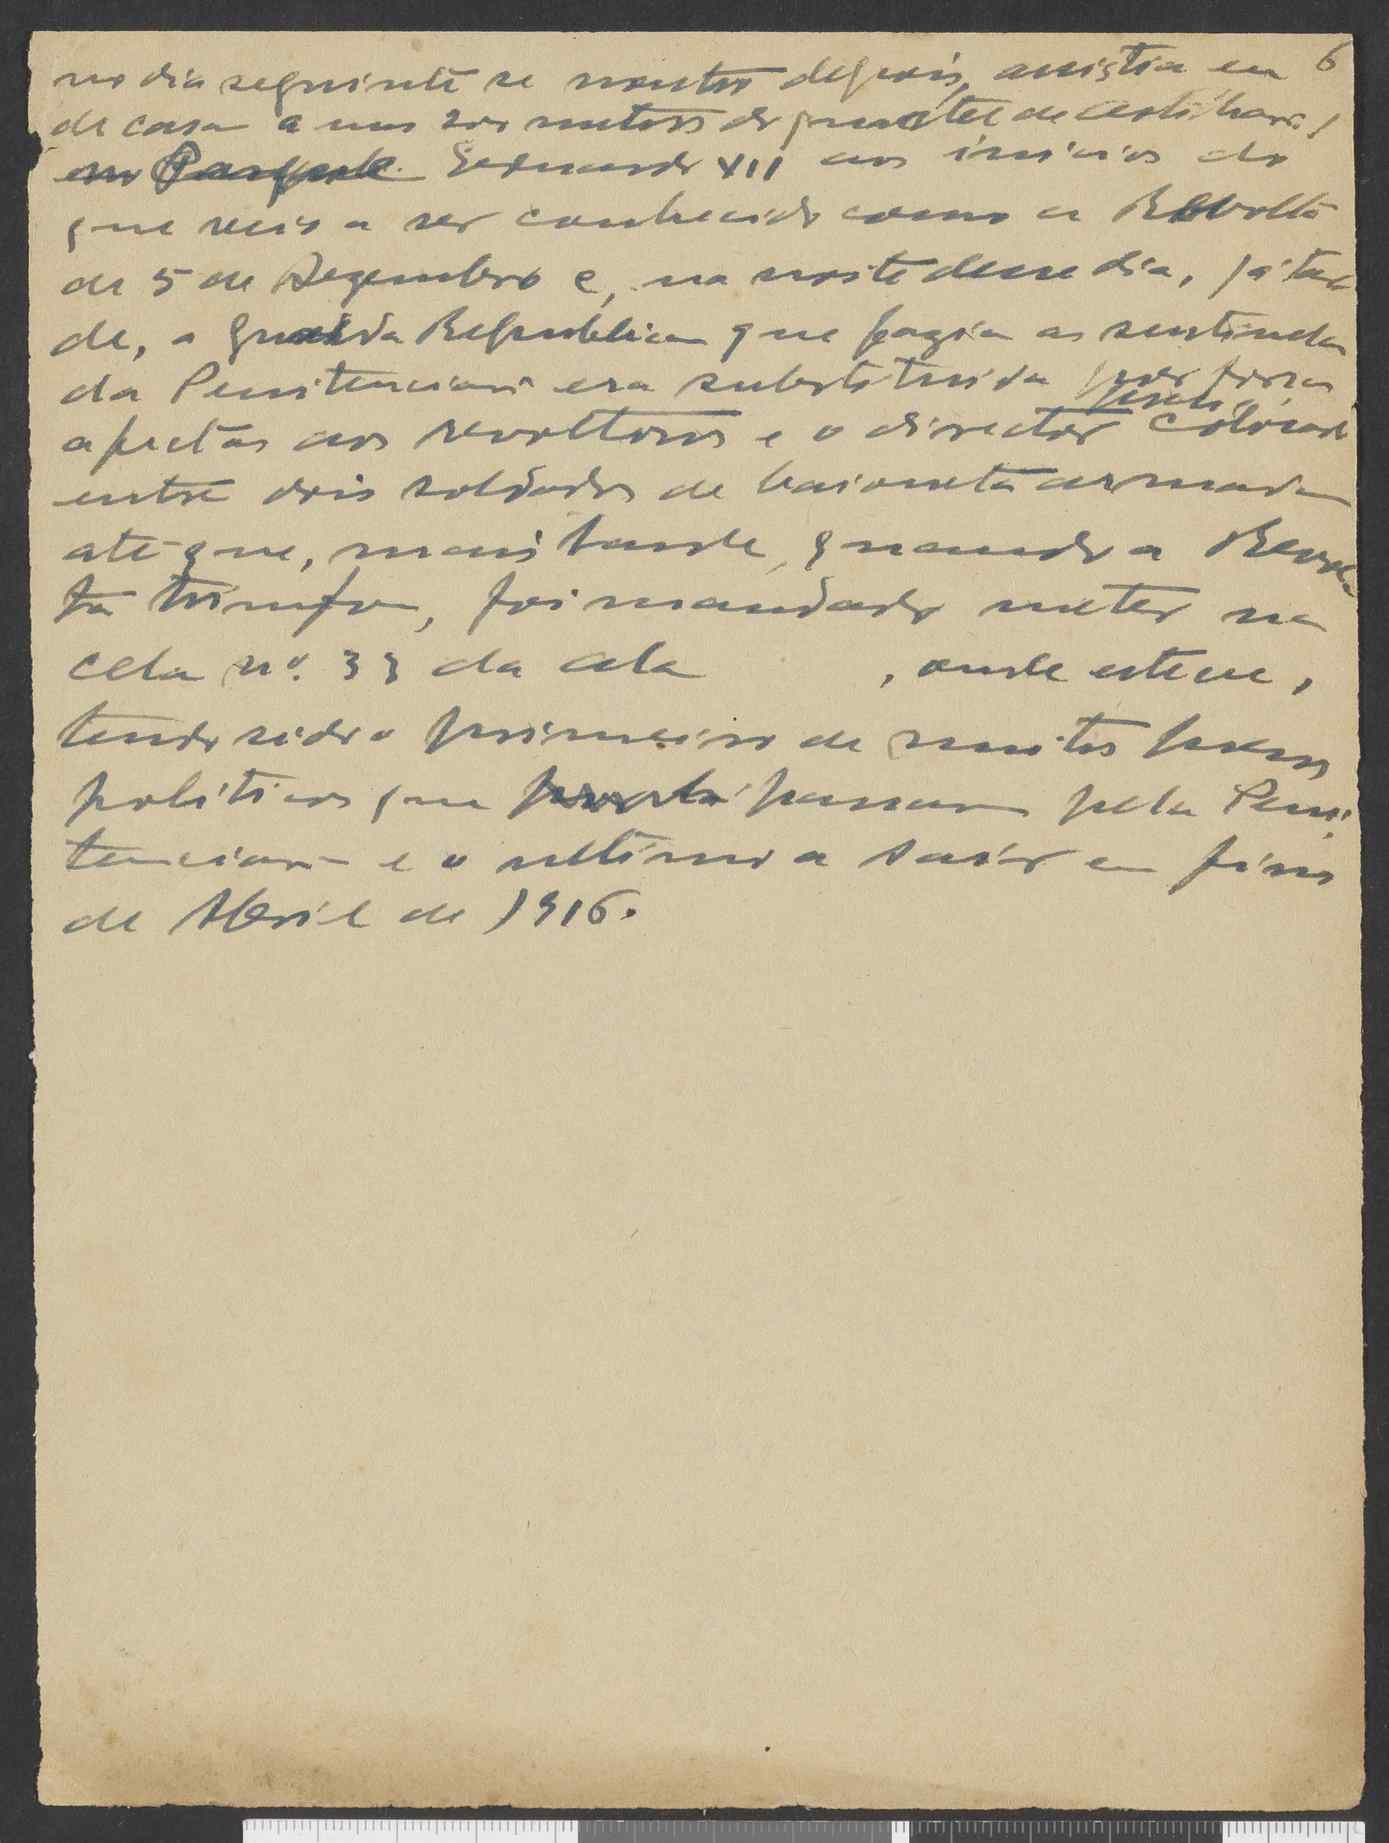 6
no dia seguinte se           depois, assistia eu
de casa a uns 200 metros do quartel de artilharia 1
no Parque Eduardo VII aos inicios do
que veio a ser conhecido como a Revolta
de 5 de Dezembro e, na noite desse dia, já tar
de, a Guarda Republicana que fazia as sentinelas
da Penitenciaria era substituida por forças
afectas aos revoltosos e o director colocado
entre dois soldados de baioneta armada
até que, mais tarde, quando a Revol
ta triunfou, foi mandado meter na
cela nº. 33 da ala , onde esteve,
tendo sido o primeiro de muitos presos
politicos que passaram pela Peni
tenciaria e o ultimo a sair em fins
de Abril de 1916.